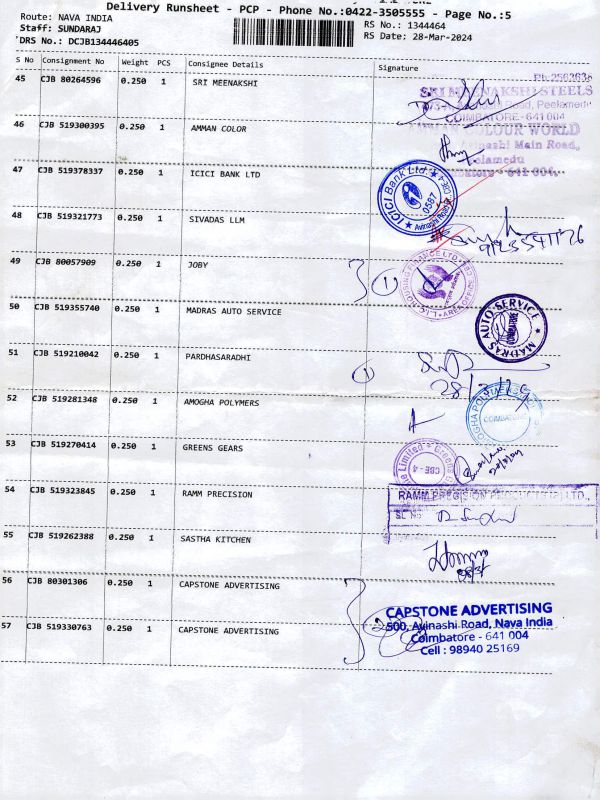 Delivery Runsheet - PCP - Phone No.:0422-3505555 - Page No.:5
Route: NAVA INDIA
RS No.: 1344464
Staff: SUNDARAJ
RS Date: 28-Mar-2024
DRS No.: DCJB134446405
S No Consignment No Weight PCS Consignee Details Signature
45 CJB 80264596 0.250 1 SRI MEENAKSHI
SRI MEENAKSHI STEELS
Road, Peelamedu
COIMBATORE - 641 004
46 CJB 519300395 0.250 1 AMMAN COLOR
COLOUR WORLD
Avinashi Main Road,
641 004.
47 CJB 519378337 0.250 1 ICICI BANK LTD
ICICI Bank Ltd.
0587
48 CJB 519321773 0.250 1 SIVADAS LLM
49 CJB 80057909 0.250 1 JOBY
1
50 CJB 519355740 0.250 1 MADRAS AUTO SERVICE
MADRAS AUTO SERVICE
COIMBATORE
51 CJB 519210042 0.250 1 PARDHASARADHI
1
52 CJB 519281348 0.250 1 AMOGHA POLYMERS
COIMBATORE
53 CJB 519270414 0.250 1 GREENS GEARS
CBE - 4
54 CJB 519323845 0.250 1 RAMM PRECISION
RAMM PRECISION PRODUCTS (P) LTD.,
55 CJB 519262388 0.250 1 SASTHA KITCHEN
56 CJB 80301306 0.250 1 CAPSTONE ADVERTISING
57 CJB 519330763 0.250 1 CAPSTONE ADVERTISING
2
CAPSTONE ADVERTISING
500, Avinashi Road, Nava India
Coimbatore - 641 004
Cell : 98940 25169